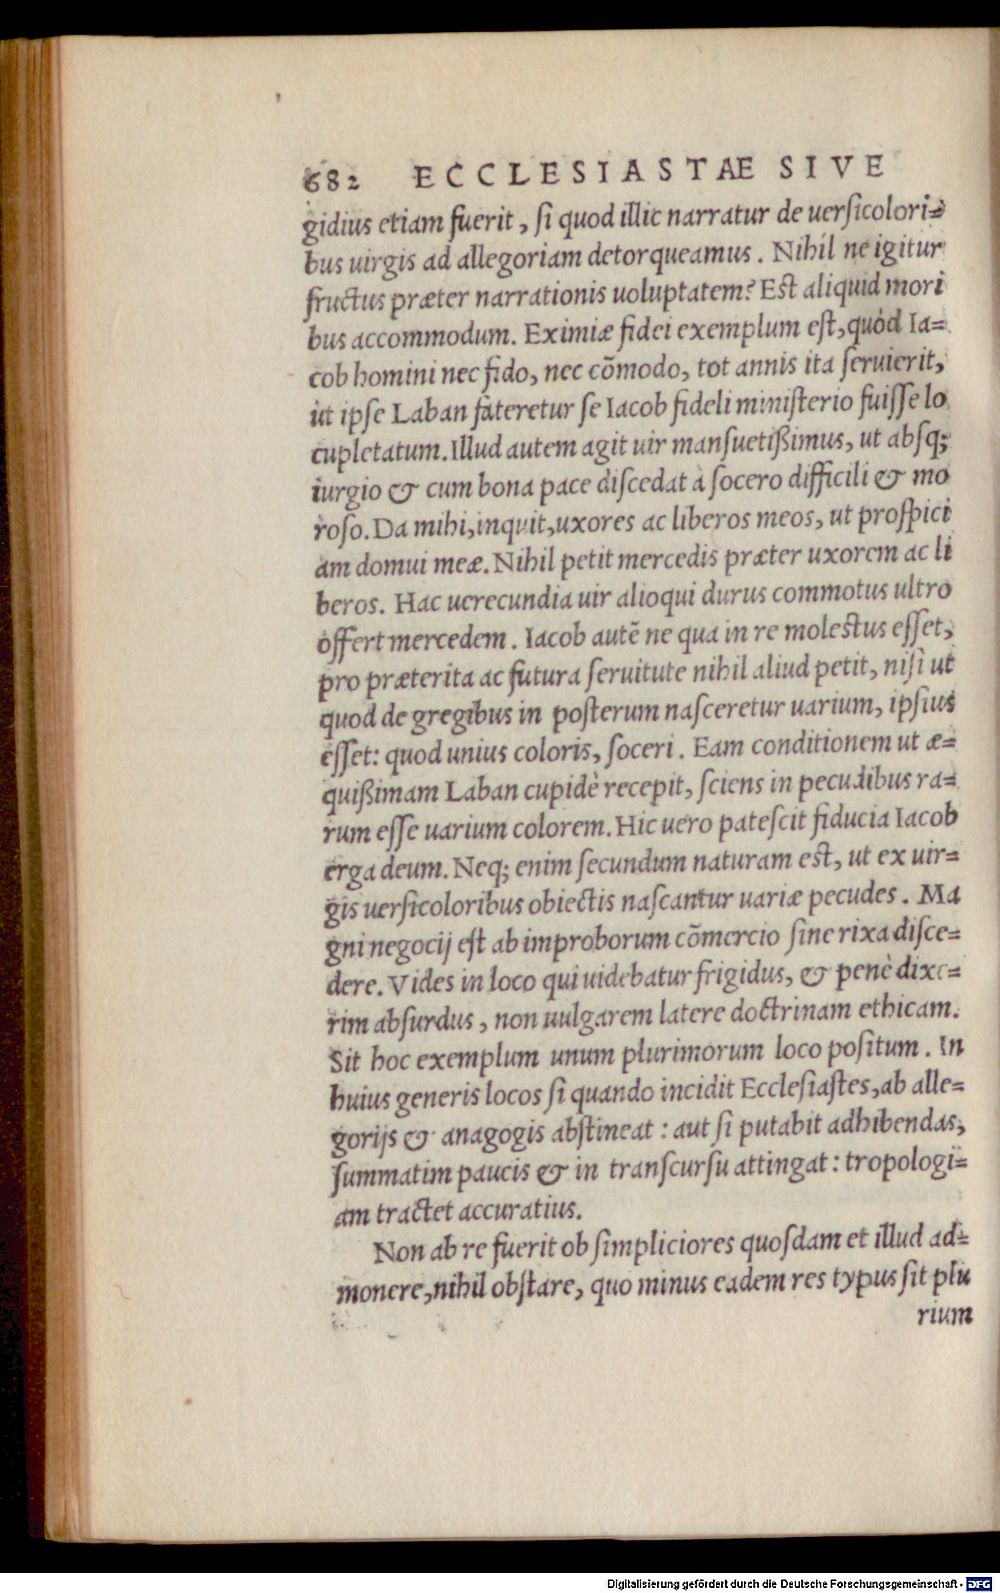 682 ECCLESIASTAE SIVE
gidius etiam fuerit, ſi quod illic narratur de uerſicolori=
bus uirgis ad allegoriam detorqueamus. Nihil ne igitur
fructus præter narrationis uoluptatem? Est aliquid mori
bus accommodum. Eximiæ fidei exemplum eſt, quòd Ia=
cob homini nec fido, nec cõmodo, tot annis ita ſeruierit,
ut ipſe Laban fateretur ſe Iacob fideli miniſterio fuiſſe lo
cupletatum. Illud autem agit uir manſuetißimus, ut abſq;
iurgio & cum bona pace diſcedat à ſocero difficili & mo
roſo. Da mihi, inquit, uxores ac liberos meos, ut proſpici
am domui meæ. Nihil petit mercedis præter uxorem ac li
beros. Hac uerecundia uir alioqui durus commotus ultro
offert mercedem. Iacob autẽ ne qua in re molestus eſſet,
pro præterita ac futura ſeruitute nihil aliud petit, niſi ut
quod de gregibus in poſterum naſceretur uarium, ipſius
eſſet: quod unius coloris, ſoceri. Eam conditionem ut æ=
quißimam Laban cupidè recepit, ſciens in pecudibus ra=
rum eſſe uarium colorem. Hic uero pateſcit fiducia Iacob
erga deum. Neq; enim ſecundum naturam est, ut ex uir=
gis uerſicoloribus obiectis naſcantur uariæ pecudes. Ma
gni negocij eſt ab improborum cõmercio ſine rixa diſce=
dere. Vides in loco qui uidebatur frigidus, & penè dixe=
rim abſurdus, non uulgarem latere doctrinam ethicam.
Sit hoc exemplum unum plurimorum loco poſitum. In
huius generis locos ſi quando incidit Eccleſiaſtes, ab alle=
gorijs & anagogis abſtineat: aut ſi putabit adhibendas,
ſummatim paucis & in tranſcurſu attingat: tropologi=
am tractet accuratius.
Non ab re fuerit ob ſimpliciores quoſdam et illud ad=
monere, nihil obſtare, quo minus eadem res typus ſit plu
rium
Digitalisierung gefördert durch die Deutsche Forschungsgemeinschaft - DFG